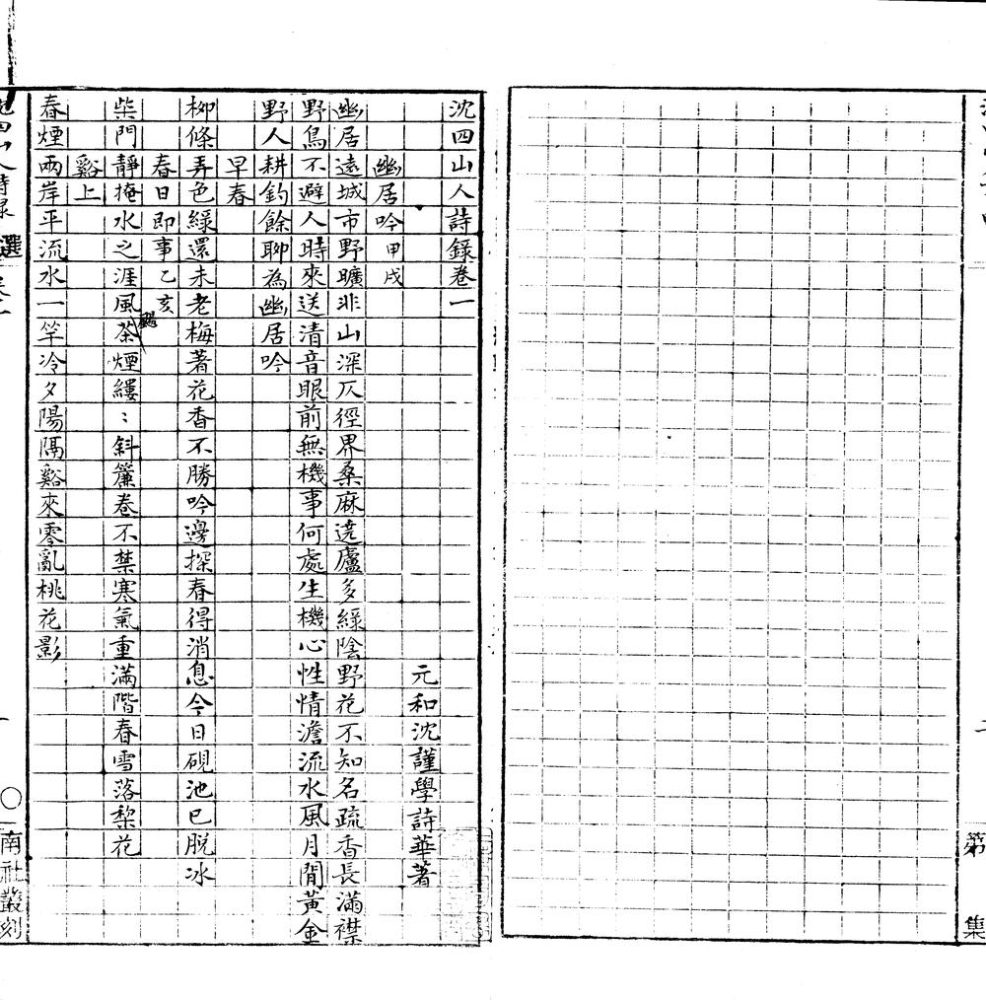 第 集
沈四山人詩錄卷一
元和沈謹學詩華著
幽居吟甲戌
幽居遠城市野曠非山深仄徑界桑麻遶廬多綠陰野花不知名疏香長滿襟
野鳥不避人時來送清音眼前無機事何處生機心性情澹流水風月閒黃金
野人耕釣餘聊為幽居吟
早春
柳條弄色綠還未老梅著花香不勝吟邊探春得消息今日硯池已脫冰
春日即事乙亥
柴門靜掩水之涯風颺茶煙縷:斜簾卷不禁寒氣重滿階春雪落梨花
谿上
春煙兩岸平流水一竿冷夕陽隔谿來零亂桃花影
四山人詩錄 選 一 南社叢刻